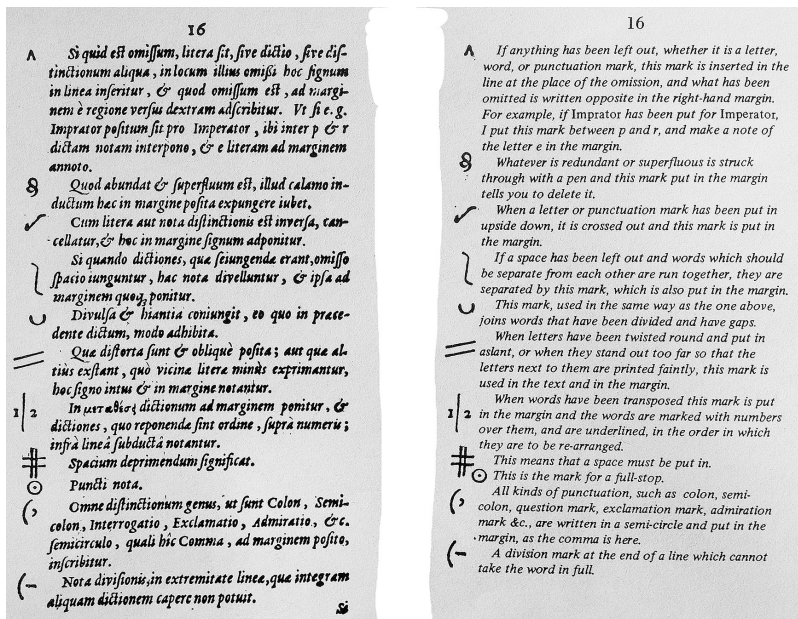 16
Si quid est omissum, litera sit, sive dictio, sive dis-
tinctionum aliqua, in locum illius omissi hoc signum
in linea inseritur, & quod omissum est, ad margi-
nem è regione versus dextram adscribitur. Vt si e. g.
Imprator positum sit pro Imperator, ibi inter p & r
dictam notam interpono, & e literam ad marginem
annoto.
Quod abundat & superfluum est, illud calamo in-
ductum hac in margine posita expungere iubet.
Cum litera aut nota distinctionis est inversa, can-
cellatur, & hoc in margine signum adponitur.
Si quando dictiones, quæ seiungendæ erant, omisso
spacio iunguntur, hac nota divelluntur, & ipsa ad
marginem quoq; ponitur.
Divulsa & hiantia coniungit, eo quo in præce-
dente dictum, modo adhibita.
Quæ distorta sunt & obliquè posita; aut quæ al-
tiùs exstant, quò vicinæ literæ minùs exprimantur,
hoc signo intus & in margine notantur.
1|2 In μεταθέσει dictionum ad marginem ponitur, &
dictiones, quo reponendæ sint ordine, suprà numeris;
infrà lineâ subductâ notantur.
Spacium deprimendum significat.
Puncti nota.
Omne distinctionum genus, ut sunt Colon, Semi-
colon, Interrogatio, Exclamatio, Admiratio, &c.
semicirculo, quali hîc Comma, ad marginem posito,
inscribitur.
Nota divisionis, in extremitate lineæ, quæ integram
aliquam dictionem capere non potuit.
Si
16
If anything has been left out, whether it is a letter,
word, or punctuation mark, this mark is inserted in the
line at the place of the omission, and what has been
omitted is written opposite in the right-hand margin.
For example, if Imprator has been put for Imperator,
I put this mark between p and r, and make a note of
the letter e in the margin.
Whatever is redundant or superfluous is struck
through with a pen and this mark put in the margin
tells you to delete it.
When a letter or punctuation mark has been put in
upside down, it is crossed out and this mark is put in
the margin.
If a space has been left out and words which should
be separate from each other are run together, they are
separated by this mark, which is also put in the margin.
This mark, used in the same way as the one above,
joins words that have been divided and have gaps.
When letters have been twisted round and put in
aslant, or when they stand out too far so that the
letters next to them are printed faintly, this mark is
used in the text and in the margin.
1|2 When words have been transposed this mark is put
in the margin and the words are marked with numbers
over them, and are underlined, in the order in which
they are to be re-arranged.
This means that a space must be put in.
This is the mark for a full-stop.
All kinds of punctuation, such as colon, semi-
colon, question mark, exclamation mark, admiration
mark &c., are written in a semi-circle and put in the
margin, as the comma is here.
A division mark at the end of a line which cannot
take the word in full.